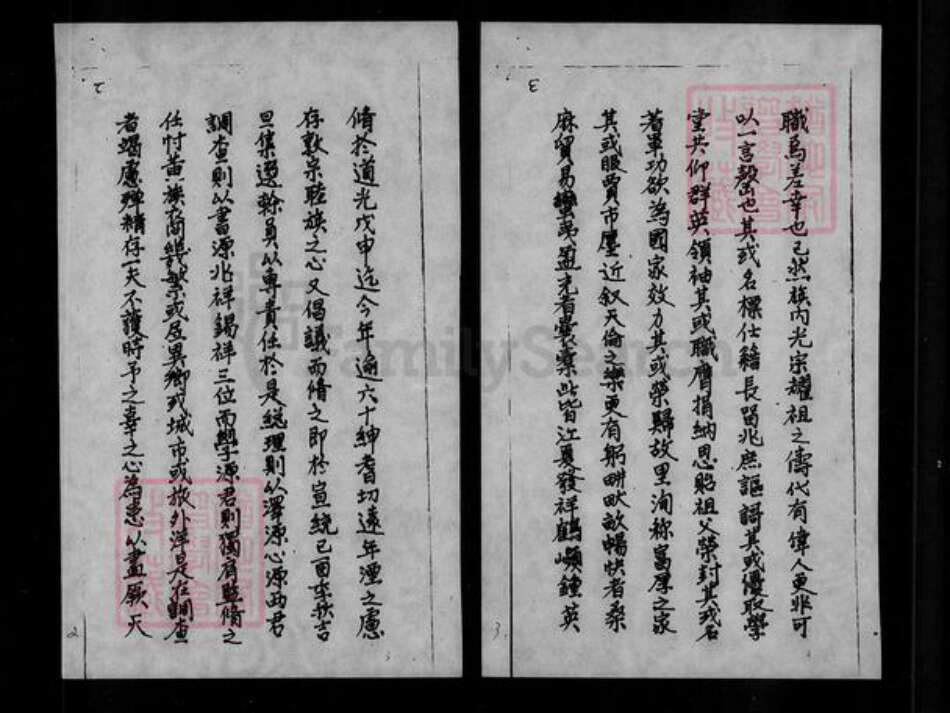 2
脩於道光戊申迄今年逾六十紳耆切遠年湮之慮
存敦宗睦族之心又倡議而脩之即於宣統己酉季秋吉
旦集選幹員以專責任於是總理則以澤源心源兩君
調查則以書源兆祥錫祥三位而學源君則獨肩監脩之
任忖黃族裔繁或居異鄉或城市或旅外洋是在調查
者竭慮殫精存一夫不護時予之辜之心為患以盡厥天
2
3
職焉差幸也已然族內光宗耀祖之儔代有偉人更非可
以一言罄也其或名標仕籍長留兆庶謳謌其或優取學
堂共仰群英領袖其或職膺捐納恩貽祖父榮封其或名
著軍功欲為國家效力其或榮歸故里洵称富厚之家
其或服賈市廛近叙天倫之樂更有躬耕畎畝暢快者桑
麻貿易蠻夷盈充者囊橐此皆江夏發祥鶴嶼鍾英
3.
FamilySearch